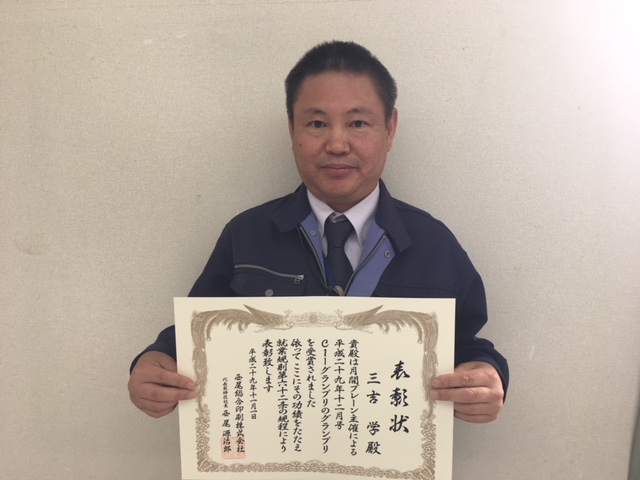 表彰状
三言 学殿
貴殿は月間ブレーン主催による
平成二十九年十二月号
C-1グランプリのグランプリ
を受賞されました
依ってここにその功績をたたえ
就業規則第六十二条の規程により
表彰致します
平成二十九年十一月一日
西尾総合印刷株式会社
代表取締役社長 西尾